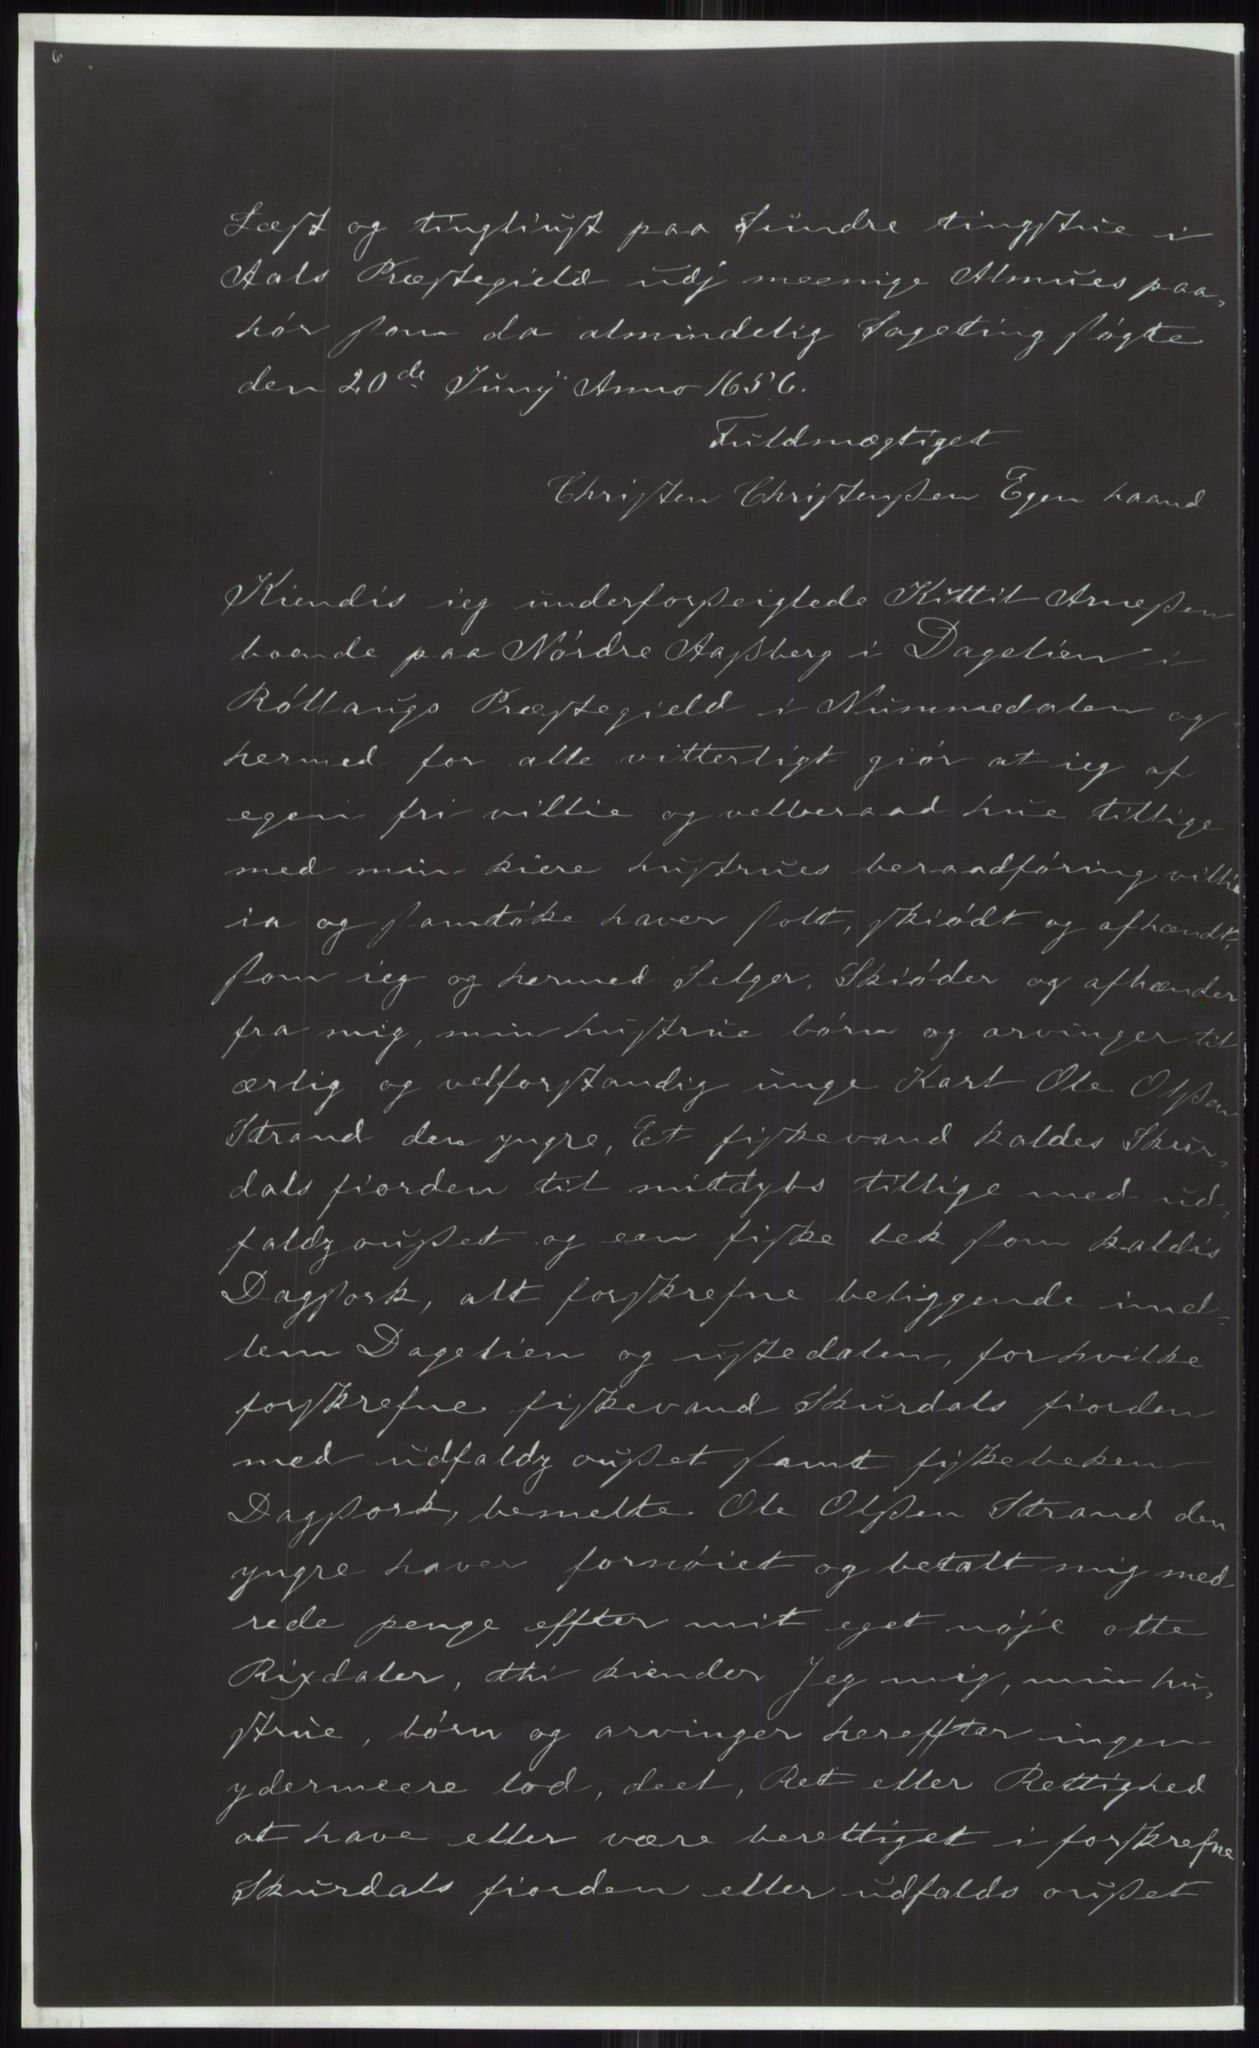 6
Læst og tingliust paa Sundre tingstue i
Aals Præstegield udj meenige Almues paa-
hør som da almindelig Sageting søgte
den 20de Junÿ Anno 1656.
Fuldmægtiget
Christen Christensen Egen haand
Kiendis ieg underforseiglede Kittil Arnesen
boende paa Nórdre Aasberg i Dagelien i
Róllaugs Præstegield i Nummedalen og
hermed for alle vitterligt giór at ieg af
egen fri villie og velberaad hue tillige
med min kiere hustrues beraadføring villi
ia og samtóke haver solt, skiødt og afhændt,
som ieg og hermed Selger, Skiøder og afhænder
fra mig, min hustrue bórn og arvinger til
ærlig og velforstandig unge Karl Ole Olsen
Strand den yngre, Et fiskevand kaldes Skur-
dals fiorden til mitdybs tillige med ud-
faldz ouset og een fiske bek som kaldis
Dagsork, alt forskrefne beliggende imel-
lem Dagelien og ustedalen, for hvilke
forskrefne fiskevand Skurdals fiorden
med udfaldz ouset samt fiskebeken
Dagsork, bemelte Ole Olsen Strand den
yngre haver fornóiet og betalt mig med
rede penge effter mit eget nóje otte
Rixdaler, thi kiender Jeg mig, min hu-
strue, bórn og arvinger hereffter ingen
ydermeere lod, deel, Ret eller Rettighed
at have eller være berettiget i forskrefne
Skurdals fiorden eller udfalds ouset